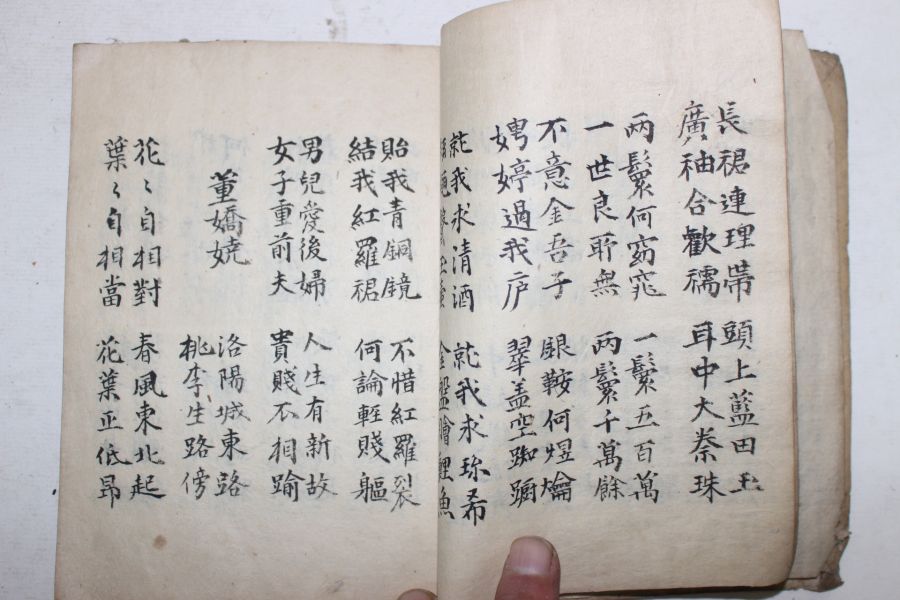 長裾連理帶
廣袖合歡襦
頭上藍田玉
耳中大秦珠
两鬟何窈窕
一世良所無
一鬟五百萬
两鬟千萬餘
不意金吾子
娉婷過我庐
銀鞍何煜爚
翠盖空踟蹰
就我求清酒
就我求珎希
金盤膾鯉魚
貽我青銅鏡
結我紅羅裾
不惜紅羅裂
何論輕賤軀
男兒愛後婦
女子重前夫
人生有新故
貴賤不相踰
董嬌嬈
洛陽城東路
桃李生路傍
花〻自相對
葉〻自相當
春風東北起
花葉正低昂